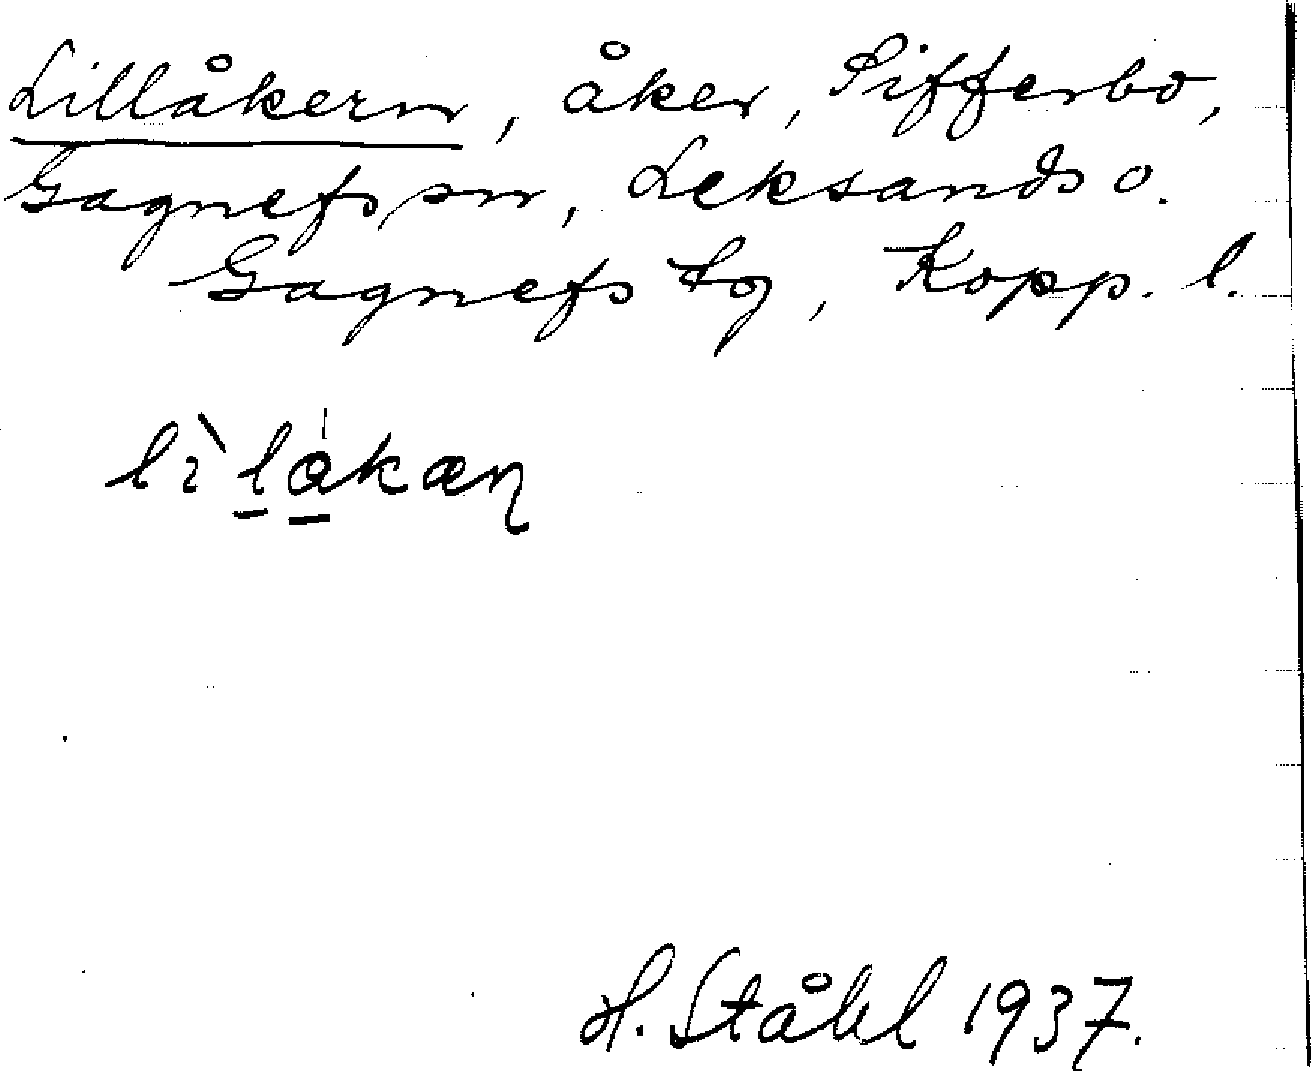 Lillåkern, åker, Sifferbo,
Gagnefs sn, Leksands o.
Gagnefs tg, Kopp. l.
lìlåkæn
H. Ståhl 1937.